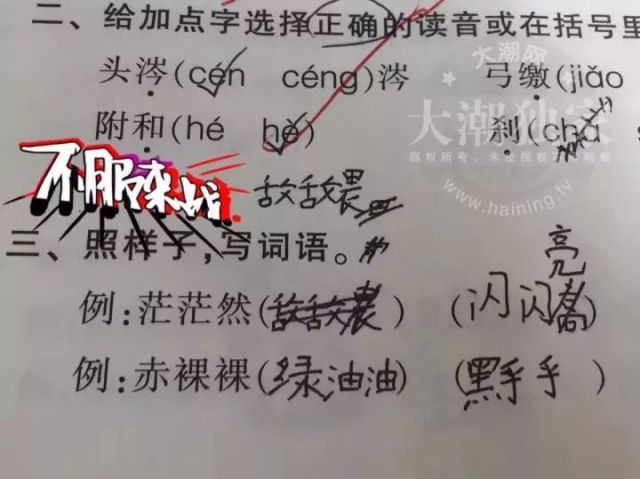 二、给加点字选择正确的读音或在括号里
头涔(cén céng)涔 弓缴(jiǎo
附和(hé hè) 刹(chà
大潮网
大潮独家
版权所有，未经授权不得转载
www.haining.tv
不服来战
三、照样子，写词语。
亮
例:茫茫然( ) (闪闪 )
例:赤裸裸(绿油油) (黑手手)